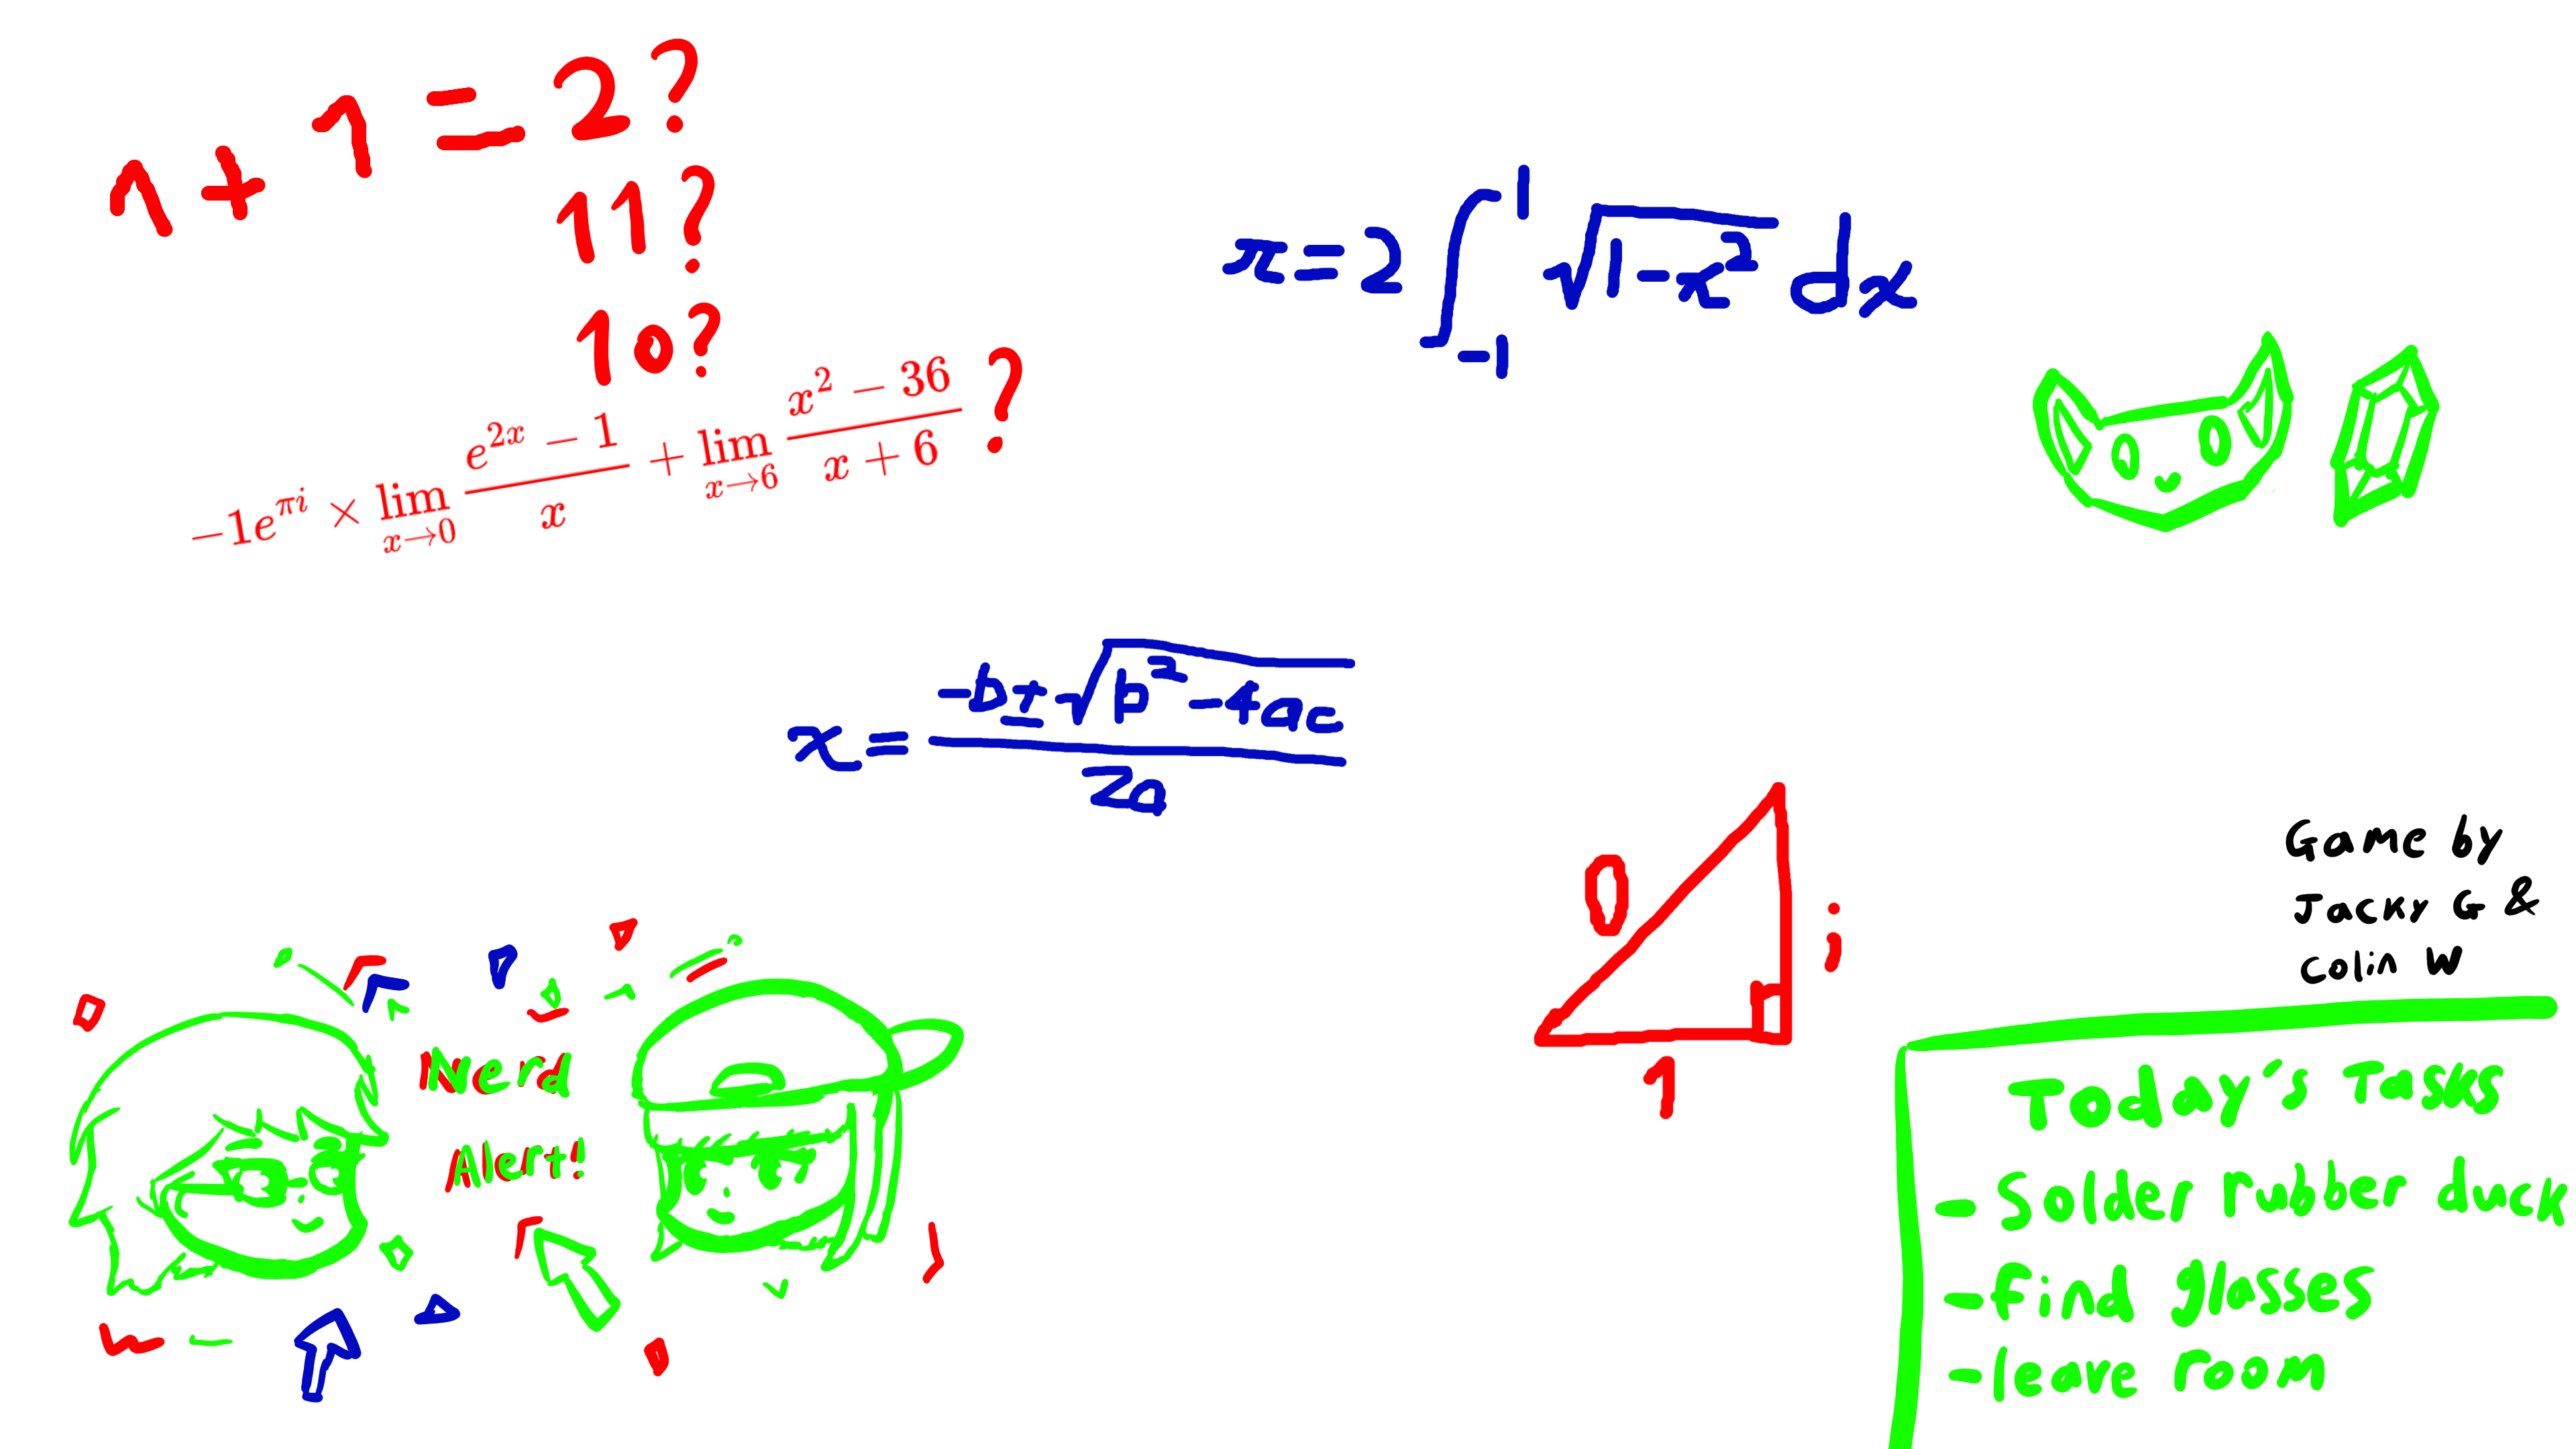 1 + 1 = 2?
11?
10?
-1e^{πi} × lim_{x→0} (e^{2x} - 1)/x + lim_{x→6} (x^2 - 36)/(x + 6) ?
π = 2 ∫_{-1}^{1} √(1-x^2) dx
x = (-b ± √(b^2 - 4ac))/2a
0
i
1
Game by
Jacky G &
Colin W
Nerd
Alert!
Today's Tasks
- Solder rubber duck
- find glasses
- leave room